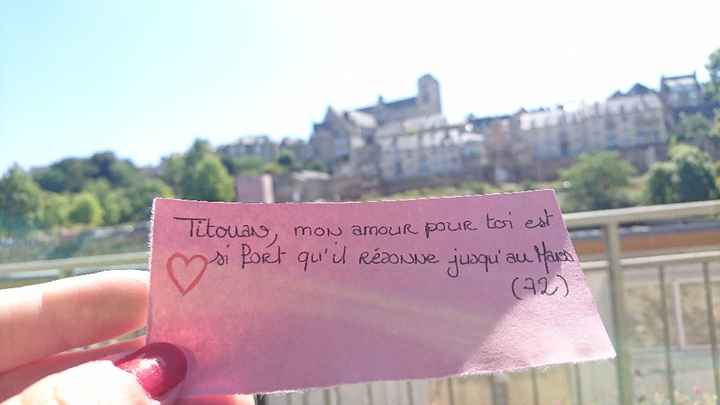 Titouan, mon amour pour toi est
si fort qu'il résonne jusqu'au Mans
(72)